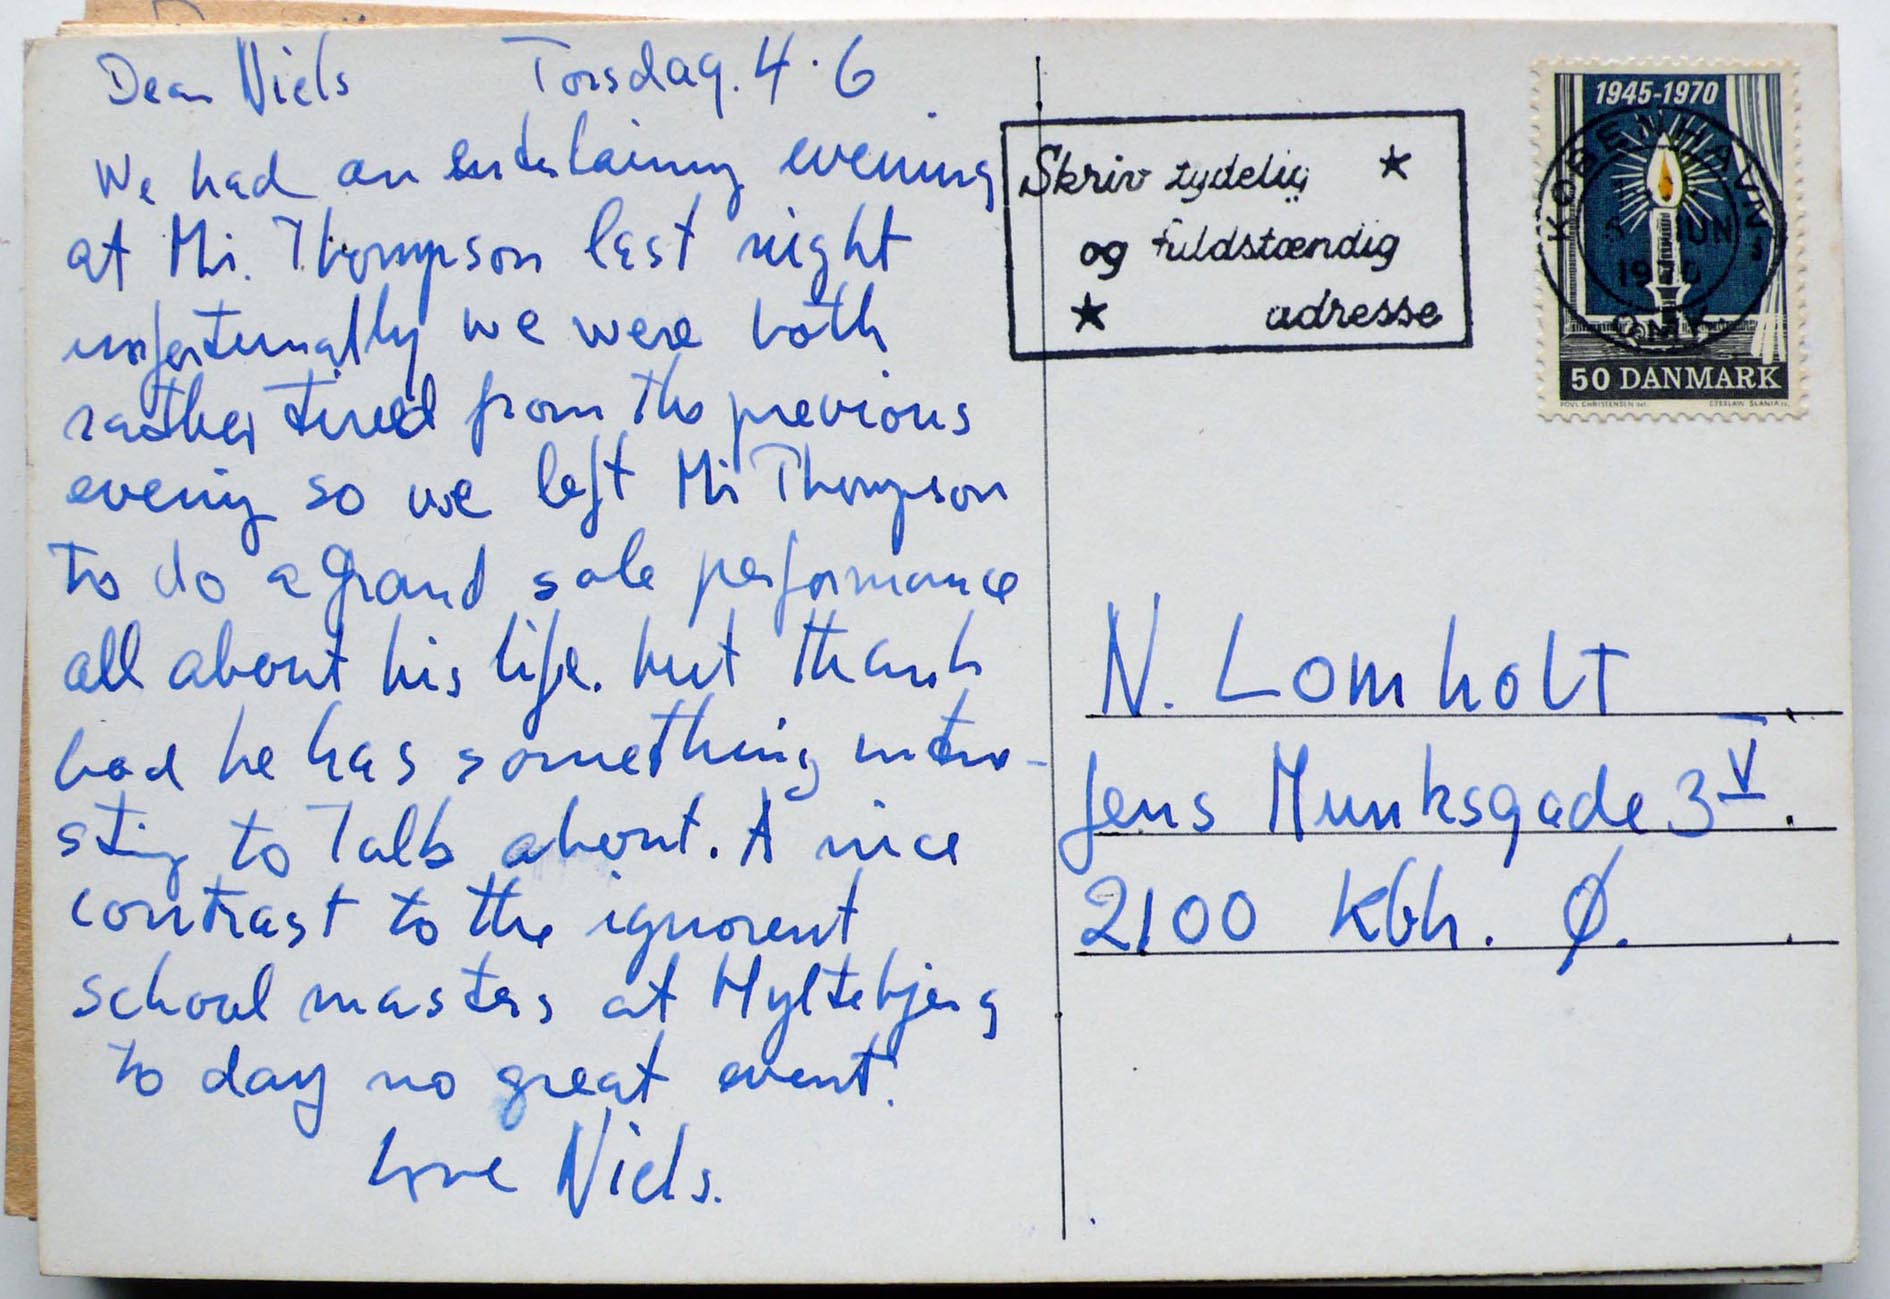 Dear Niels Torsdag. 4.6
We had an entertaining evening
at Mr. Thompson last night
unfortunally we were both
rather tired from the previous
evening so we left Mr Thompson
to do a grand sole performance
all about his life. but thank
God he has something intre-
sting to talk about. A nice
contrast to the ignorent
school masters at Hyltebjerg
to day no great event.
Love Niels.
Skriv tydelig
og fuldstændig
adresse
1945-1970
KØBENHAVN
JUN
1970
OMK
50 DANMARK
POVL CHRISTENSEN del. CZESLAW SLANIA sc.
N. Lomholt
Jens Munksgade 3 V.
2100 Kbh. Ø.